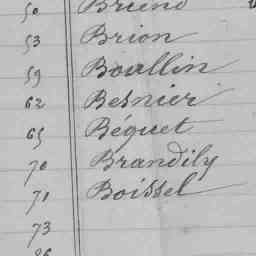 50 Briend
53 Brion
59 Boullin
62 Besnier
65 Béquet
70 Brandily
71 Boissel
73